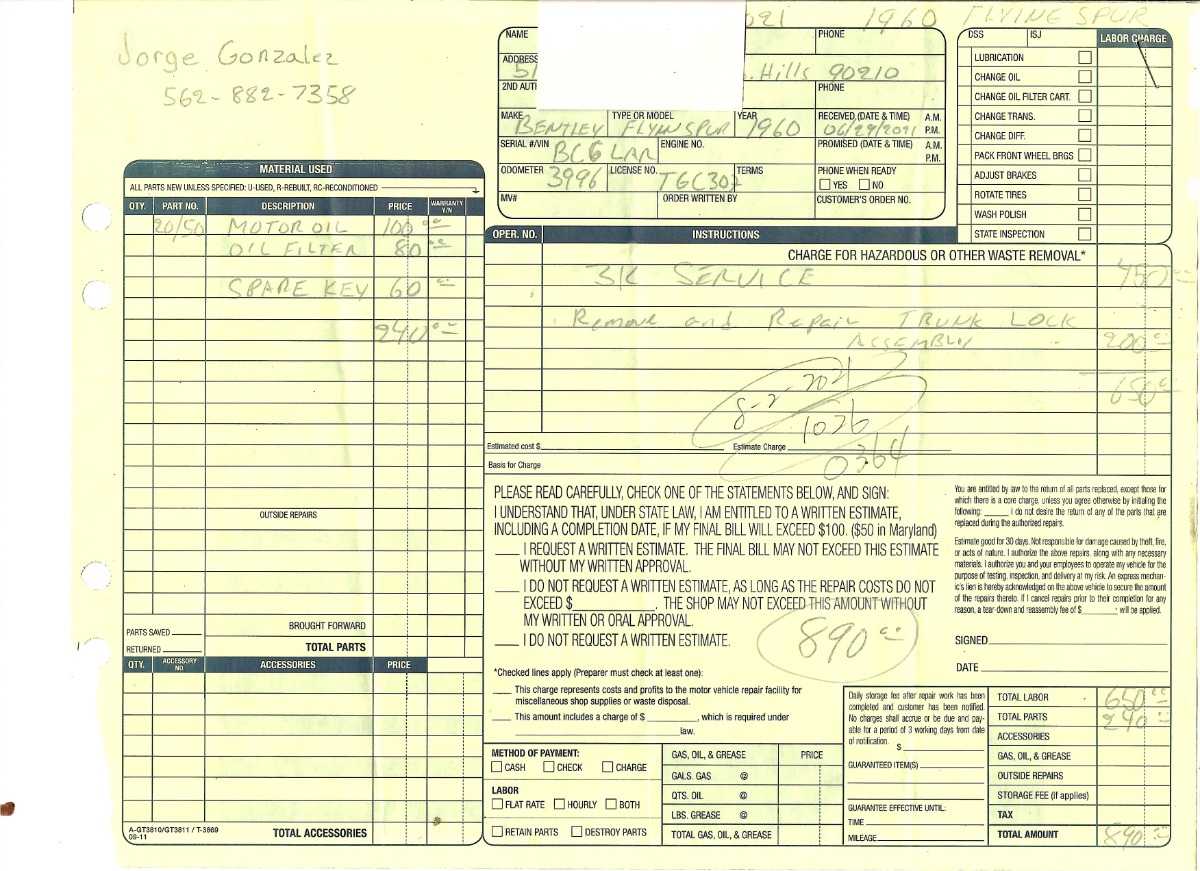 1960 FLYING SPUR
Jorge Gonzalez
562-882-7358
NAME
PHONE
ADDRESS
Hills 90210
2ND AUTH
PHONE
MAKE BENTLEY
TYPE OR MODEL FLYIN SPUR
YEAR 1960
RECEIVED (DATE & TIME) A.M. P.M.
SERIAL #/VIN BC6 LAR
ENGINE NO.
PROMISED (DATE & TIME) A.M. P.M.
ODOMETER 3996
LICENSE NO. TGC302
TERMS
PHONE WHEN READY
YES NO
MV#
ORDER WRITTEN BY
CUSTOMER'S ORDER NO.
DSS ISJ LABOR CHARGE
LUBRICATION
CHANGE OIL
CHANGE OIL FILTER CART.
CHANGE TRANS.
CHANGE DIFF.
PACK FRONT WHEEL BRGS
ADJUST BRAKES
ROTATE TIRES
WASH POLISH
STATE INSPECTION
MATERIAL USED
ALL PARTS NEW UNLESS SPECIFIED: U-USED, R-REBUILT, RC-RECONDITIONED
QTY. PART NO. DESCRIPTION PRICE WARRANTY Y/N
20/50 MOTOR OIL 100 00
OIL FILTER 80 00
SPARE KEY 60 00
240 00
OUTSIDE REPAIRS
PARTS SAVED
RETURNED
BROUGHT FORWARD
TOTAL PARTS
QTY. ACCESSORY NO. ACCESSORIES PRICE
A-GT3810/GT3811 / T-3869
09-11
TOTAL ACCESSORIES
OPER. NO. INSTRUCTIONS
CHARGE FOR HAZARDOUS OR OTHER WASTE REMOVAL*
3K SERVICE 450 00
Remove and Repair TRUNK LOCK
ASSEMBLY 200 00
650 00
8-2-2021
1026
0364
Estimated cost $ Estimate Charge
Basis for Charge
PLEASE READ CAREFULLY, CHECK ONE OF THE STATEMENTS BELOW, AND SIGN:
I UNDERSTAND THAT, UNDER STATE LAW, I AM ENTITLED TO A WRITTEN ESTIMATE,
INCLUDING A COMPLETION DATE, IF MY FINAL BILL WILL EXCEED $100. ($50 in Maryland)
I REQUEST A WRITTEN ESTIMATE. THE FINAL BILL MAY NOT EXCEED THIS ESTIMATE
WITHOUT MY WRITTEN APPROVAL.
I DO NOT REQUEST A WRITTEN ESTIMATE, AS LONG AS THE REPAIR COSTS DO NOT
EXCEED $ . THE SHOP MAY NOT EXCEED THIS AMOUNT WITHOUT
MY WRITTEN OR ORAL APPROVAL.
I DO NOT REQUEST A WRITTEN ESTIMATE.
890 00
*Checked lines apply (Preparer must check at least one):
This charge represents costs and profits to the motor vehicle repair facility for
miscellaneous shop supplies or waste disposal.
This amount includes a charge of $ , which is required under
law.
You are entitled by law to the return of all parts replaced, except those for
which there is a core charge, unless you agree otherwise by initialing the
following: I do not desire the return of any of the parts that are
replaced during the authorized repairs.
Estimate good for 30 days. Not responsible for damage caused by theft, fire,
or acts of nature. I authorize the above repairs, along with any necessary
materials. I authorize you and your employees to operate my vehicle for the
purpose of testing, inspection, and delivery at my risk. An express mechan-
ic's lien is hereby acknowledged on the above vehicle to secure the amount
of the repairs thereto. If I cancel repairs prior to their completion for any
reason, a tear-down and reassembly fee of $ will be applied.
SIGNED
DATE
METHOD OF PAYMENT:
CASH CHECK CHARGE
LABOR
FLAT RATE HOURLY BOTH
RETAIN PARTS DESTROY PARTS
GAS, OIL, & GREASE PRICE
GALS. GAS @
QTS. OIL @
LBS. GREASE @
TOTAL GAS, OIL, & GREASE
Daily storage fee after repair work has been
completed and customer has been notified.
No charges shall accrue or be due and pay-
able for a period of 3 working days from date
of notification. $
GUARANTEED ITEM(S)
GUARANTEE EFFECTIVE UNTIL:
TIME
MILEAGE
TOTAL LABOR 650 00
TOTAL PARTS 240 00
ACCESSORIES
GAS, OIL, & GREASE
OUTSIDE REPAIRS
STORAGE FEE (if applies)
TAX
TOTAL AMOUNT 890 00